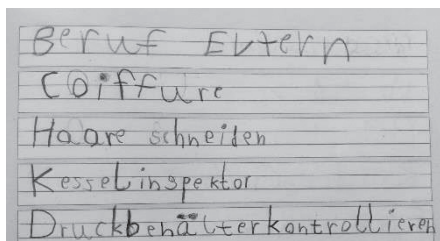 Beruf Evtern
Coiffure
Haare schneiden
Kesselinspektor
Druckbehälterkontrollieren